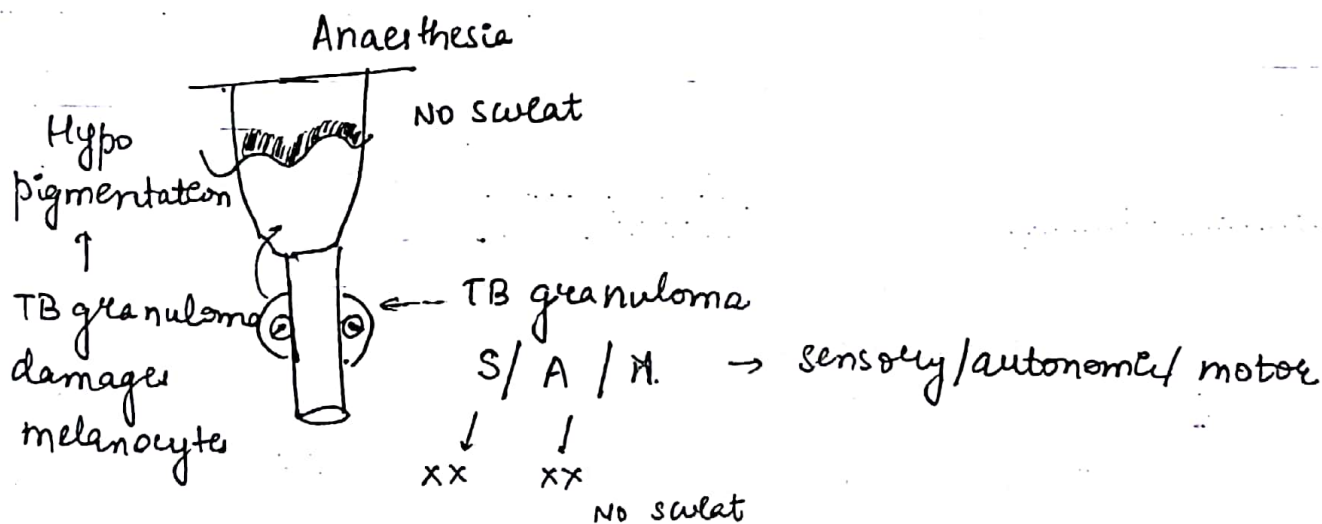 Anaesthesia
No sweat
Hypo
pigmentation
↑
TB granuloma
damages
melanocytes
← TB granuloma
S/ A / M. → sensory/autonomic/ motor
xx xx
No sweat